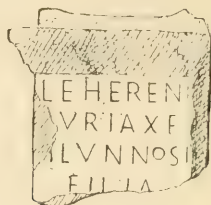 LEHEREN
VRIAXE
ILVNNOSI
FILIA